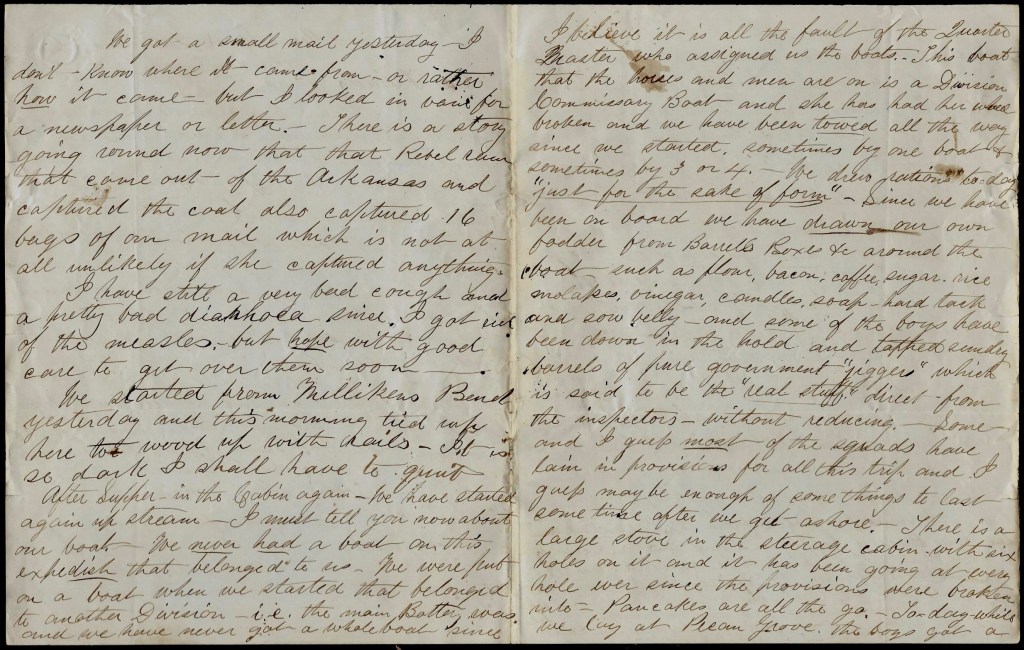 We got a small mail yesterday - I
don't - know where it came from - or rather
how it came - but I looked in vain for
a newspaper or letter. - There is a story
going round now that that Rebel ram
that came out - of the Arkansas and
captured the coal also captured 16
bags of our mail which is not at
all unlikely if she captured anything -
I have still a very bad cough and
a pretty bad diarrhoea since I got rid
of the measles, - but hope with good
care to get over them soon
We started from Millikens Bend
yesterday and this morning tied up
here to wood up with rails - It is
so dark I shall have to quit
After Supper - in the Cabin again - We have started
again up stream - I must tell you now about
our boat - We never had a boat on this
expedish that belonged to us - We were put
on a boat when we started that belonged
to another Division - i.e. the main Battery was
and we have never got a whole boat since
I believe it is all the fault of the Quarter
Master who assigned us the boats. - This boat
that the horses and men are on is a Division
Commissary Boat and she has had her
broken and we have been towed all the way
since we started. sometimes by one boat &
sometimes by 3 or 4. - We drew rations to-day
"just for the sake of form" - Since we have
been on board we have drawn our own
fodder from Barrells Boxes &c around the
boat - such as flour, bacon, coffee, sugar. rice
molasses, vinegar, candles, soap - hard tack
and sow belly - and some of the boys have
been down in the hold and tapped sundry
barrels of pure government "jiggers" which
is said to be the "real stuff" direct - from
the inspectors - without reducing. - Some
and I guess most of the squads have
lain in provisions for all this trip and I
guess may be enough of some things to last
some time after we get ashore. - There is a
large stove in the steerage cabin with six
holes on it and it has been going at every
hole ever since the provisions were broken
into - Pancakes are all the go. - To-day while
we lay at Pecan Grove. the boys got a